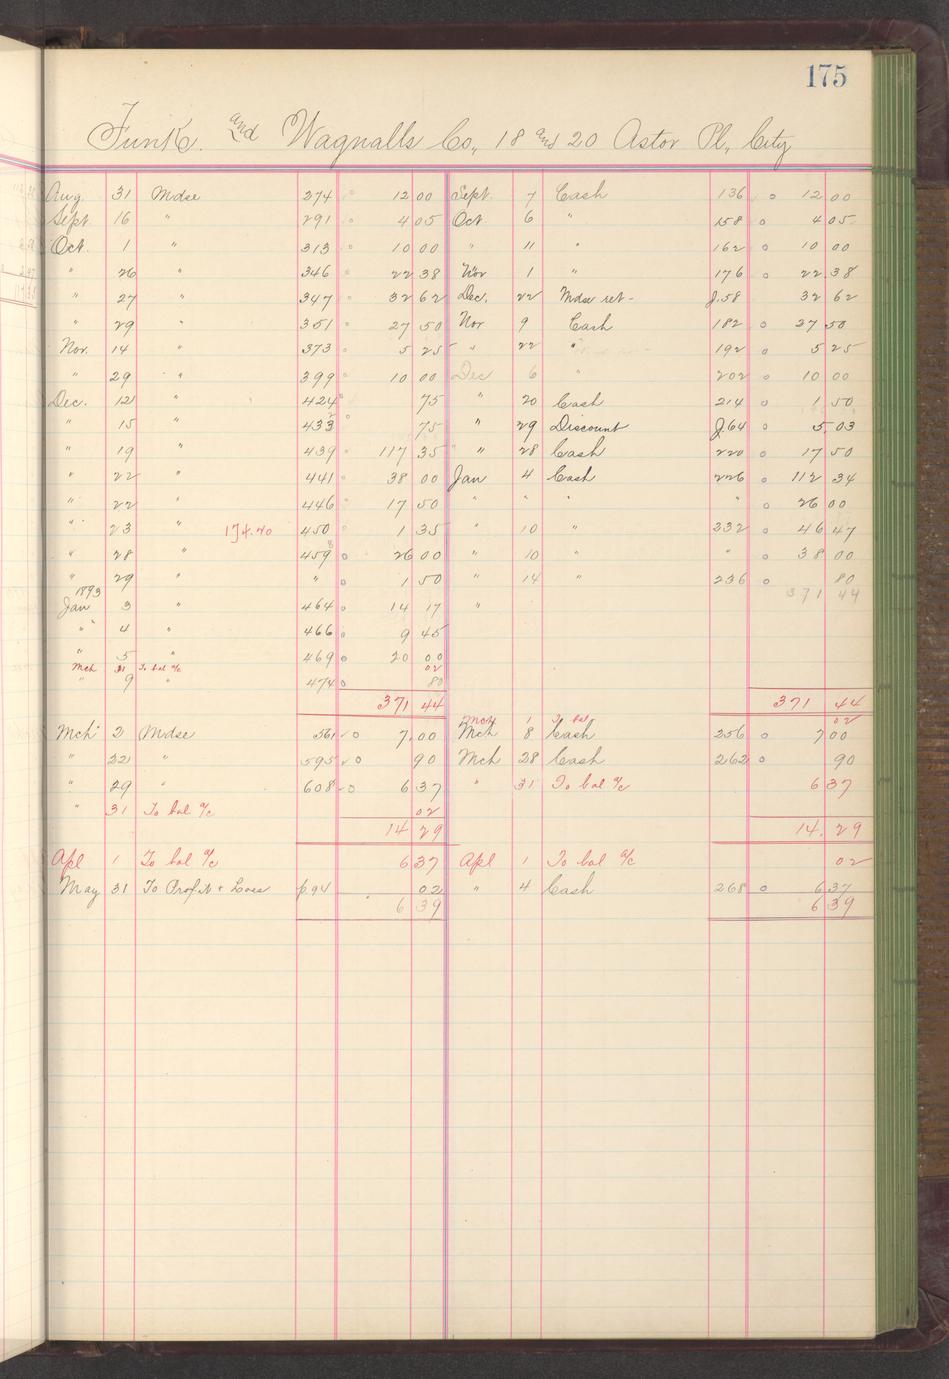 175
Funk and Wagnalls Co., 18 and 20 Astor Pl, City
Aug. 31 Mdse 274 o 12 00 Sept. 7 Cash 136 o 12 00
Sept. 16 " 291 o 4 05 Oct. 6 " 158 o 4 05
Oct. 1 " 313 o 10 00 " 11 " 162 o 10 00
" 26 " 346 o 22 38 Nov 1 " 176 o 22 38
" 27 " 347 o 32 62 Dec. 22 Mdse ret- J.58 32 62
" 29 " 351 o 27 50 Nov 9 Cash 182 o 27 50
Nov. 14 " 373 o 5 25 " 22 " 192 o 5 25
" 29 " 399 o 10 00 Dec 6 " 202 o 10 00
Dec. 12 " 424 o 75 " 20 Cash 214 o 1 50
" 15 " 433 o 75 " 29 Discount J.64 o 5 03
" 19 " 439 o 117 35 " 28 Cash 220 o 17 50
" 22 " 441 o 38 00 Jan 4 Cash 226 o 112 34
" 22 " 446 o 17 50 " " " " o 26 00
" 23 " 174.40 450 o 1 35 " 10 " 232 o 46 47
" 28 " 459 o 26 00 " 10 " " o 38 00
" 29 " " o 1 50 " 14 " 236 o 80
1893 371 44
Jan 3 " 464 o 14 17 "
" 4 " 466 o 9 45
" 5 " 469 o 20 00
Mch 31 To bal a/c 02
" 9 " 474 o 80
371 44 371 44
Mch 1 To bal 02
Mch 2 Mdse 561 o 7.00 Mch 8 Cash 256 o 7 00
" 22 " 595 o 90 Mch 28 Cash 262 o 90
" 29 " 608 o 6 37 " 31 To bal a/c 6 37
" 31 To bal a/c 02
14 29 14. 29
Apl 1 To bal a/c 6 37 Apl 1 To bal a/c 02
May 31 To Profit + Loss p94 02 " 4 Cash 268 o 6 37
6 39 6 39